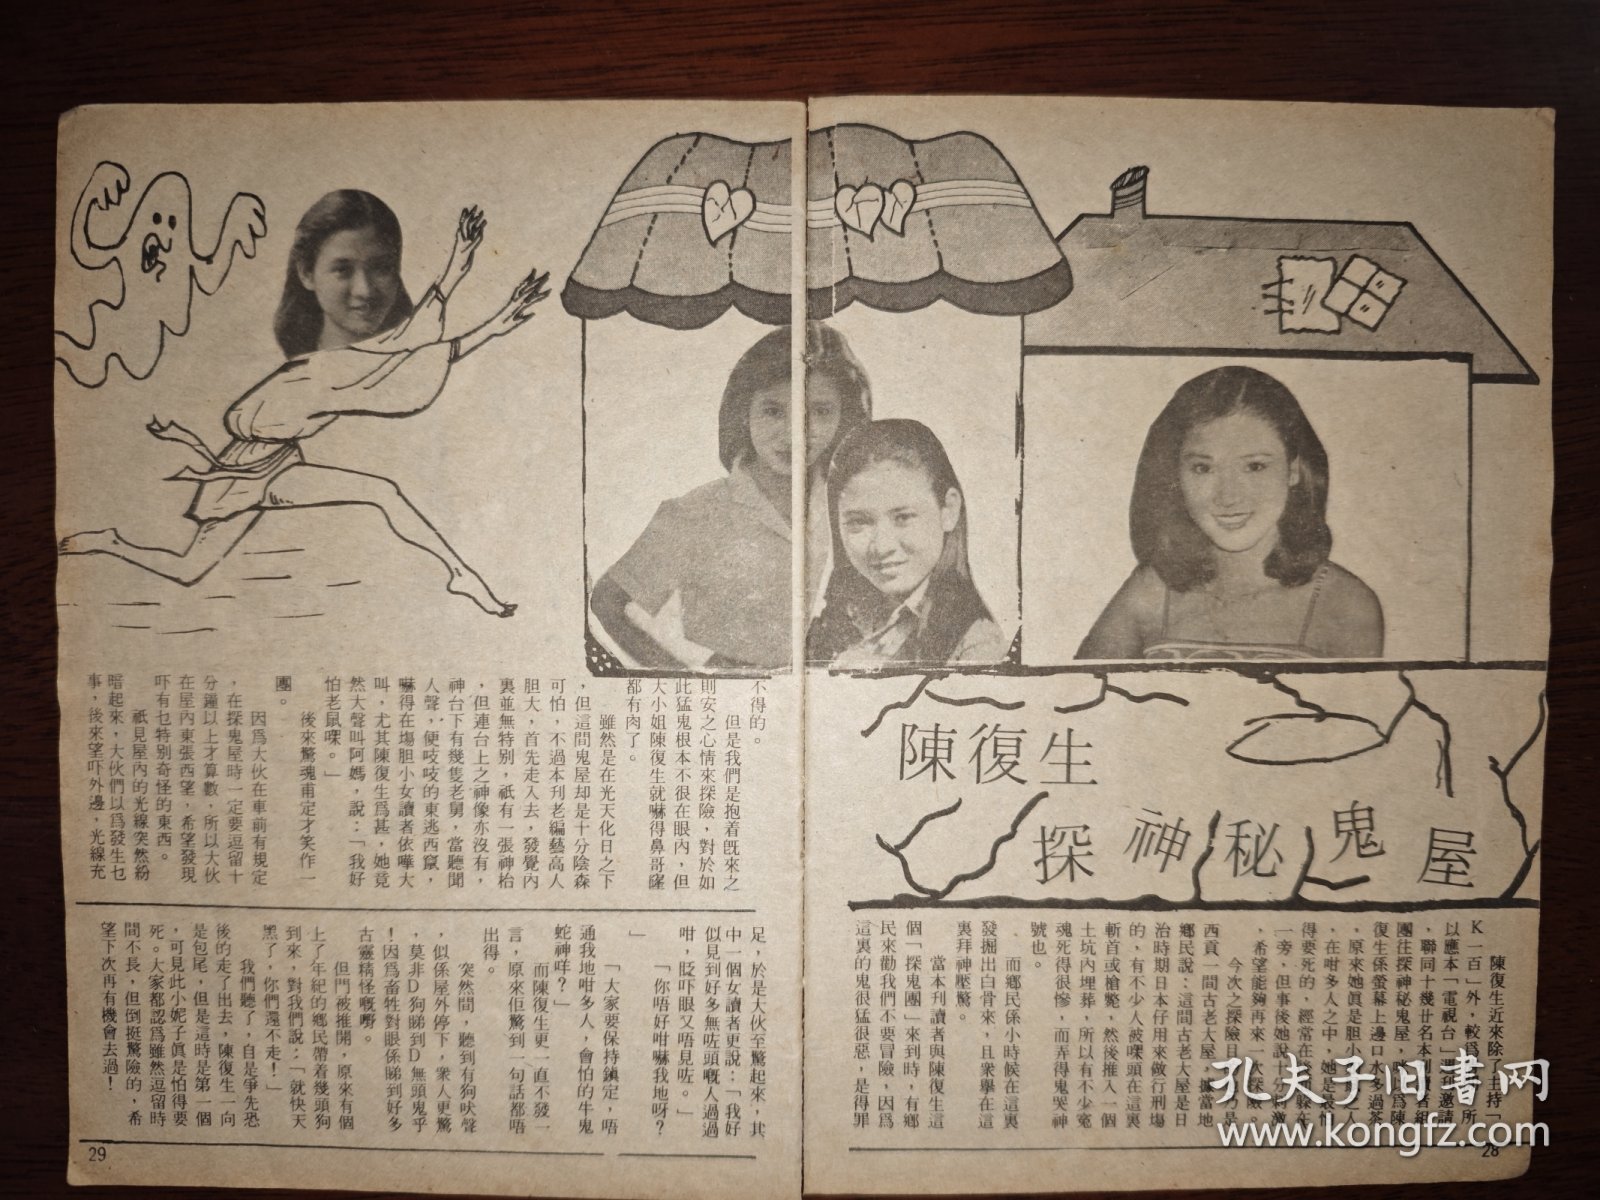 陳復生
探神秘鬼屋
陳復生近來除了主持「
K一百」外，較爲
以應本「電視台」週刊邀請
，聯同十幾廿名本刊讀者組
團往探神秘鬼屋，
復生係螢幕上邊口水多過茶
，原來她眞是胆小
，在咁多人之中，她是最怕
得要死的，經常在
一旁，但事後她說十分刺激
，希望能夠再來一次探險。
今次之探險目
西貢一間古老大屋，據當地
鄉民說：這間古老大屋是日
治時期日本仔用來做行刑場
的，有不少人被嘿頭在這裏
斬首或槍斃，然後推入一個
土坑內埋葬，所以有不少寃
魂死得很慘，而弄得鬼哭神
號也。
而鄉民係小時候在這裏
發掘出白骨來，且衆舉在這
裏拜神壓驚。
當本刊讀者與陳復生這
個「探鬼團」來到時，有鄉
民來勸我們不要冒險，因爲
這裏的鬼很猛很惡，是得罪
28
不得的。
但是我們是抱着旣來之
則安之心情來探險，對於如
此猛鬼根本不很在眼內，但
大小姐陳復生就嚇得鼻哥窿
都有肉了。
雖然是在光天化日之下
，但這間鬼屋却是十分陰森
可怕，不過本刊老編藝高人
胆大，首先走入去，發覺內
裏並無特别，祇有一張神枱
，但連台上之神像亦沒有，
神台下有幾隻老舅，當聽聞
人聲，便吱吱的東逃西竄，
嚇得在塲胆小女讀者依嘩大
叫，尤其陳復生爲甚，她竟
然大聲叫阿媽，說：「我好
怕老鼠㗎。」
後來驚魂甫定才笑作一
團。
因爲大伙在車前有規定
，在探鬼屋時一定要逗留十
分鐘以上才算數，所以大伙
在屋內東張西望，希望發現
吓有乜特别奇怪的東西。
祇見屋內的光線突然紛
暗起來，大伙們以爲發生乜
事，後來望吓外邊，光線充
足，於是大伙至驚起來，其
中一個女讀者更說：「我好
似見到好多無咗頭嘅人過過
咁，眨吓眼又唔見咗。」
「你唔好咁嚇我地呀？
」
「大家要保持鎭定，唔
通我地咁多人，會怕的牛鬼
蛇神咩？」
而陳復生更一直不發一
言，原來佢驚到一句話都唔
出得。
突然間，聽到有狗吠聲
，似係屋外停下，衆人更驚
，莫非D狗睇到D無頭鬼乎
！因爲畜牲對眼係睇到好多
古靈精怪嘅嘢。
但門被推開，原來有個
上了年紀的鄉民帶着幾頭狗
到來，對我們說：「就快天
黑了，你們還不走！」
我們聽了，自是爭先恐
後的走了出去，陳復生一向
是包尾，但是這時是第一個
，可見此小妮子眞是怕得要
死。大家都認爲雖然逗留時
間不長，但倒挺驚險的，希
望下次再有機會去過！
29
孔夫子旧書网
www.kongfz.com